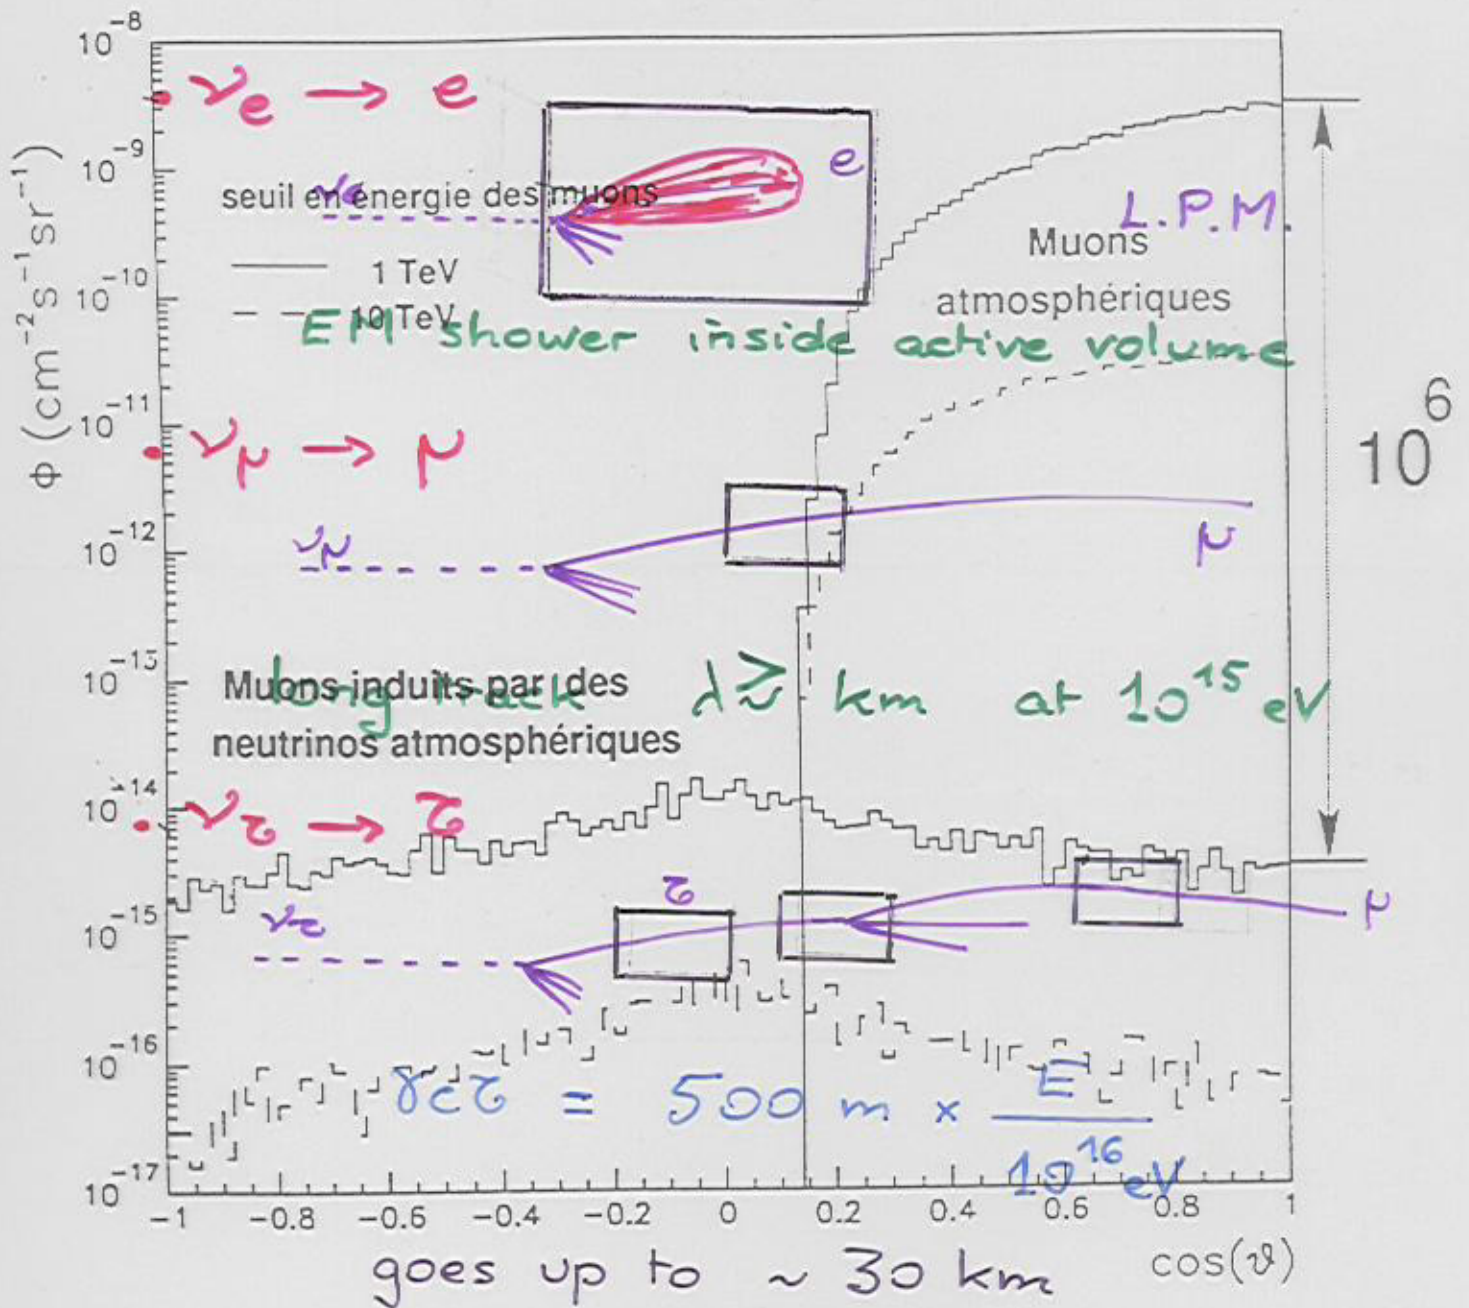 Φ (cm⁻²s⁻¹sr⁻¹)
10⁻⁸
10⁻⁹
10⁻¹⁰
10⁻¹¹
10⁻¹²
10⁻¹³
10⁻¹⁴
10⁻¹⁵
10⁻¹⁶
10⁻¹⁷
• νe → e
e
seuil en énergie des muons
νe
L.P.M.
1 TeV
10 TeV
Muons
atmosphériques
EM shower inside active volume
10⁶
• νμ → μ
νμ
μ
Muons induits par des
neutrinos atmosphériques
long track λ ≳ km at 10¹⁵ eV
• ντ → τ
τ
ντ
γcτ = 500 m × E
10¹⁶ eV
-1 -0.8 -0.6 -0.4 -0.2 0 0.2 0.4 0.6 0.8 1
cos(ϑ)
goes up to ~ 30 km